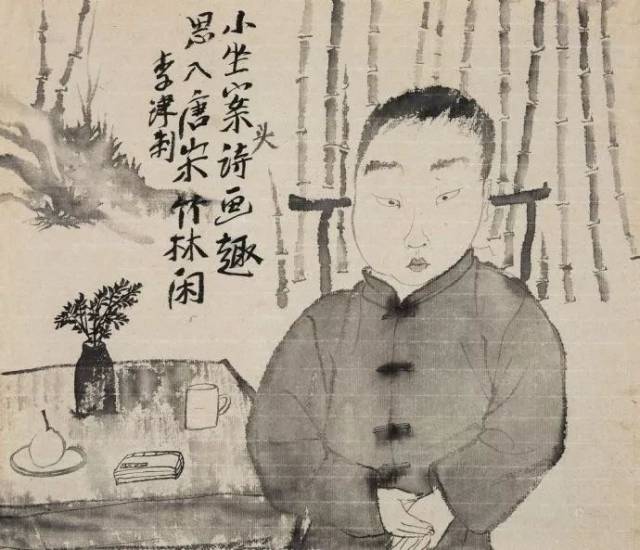 小坐案头诗画趣
思入唐宋竹林闲
李津制